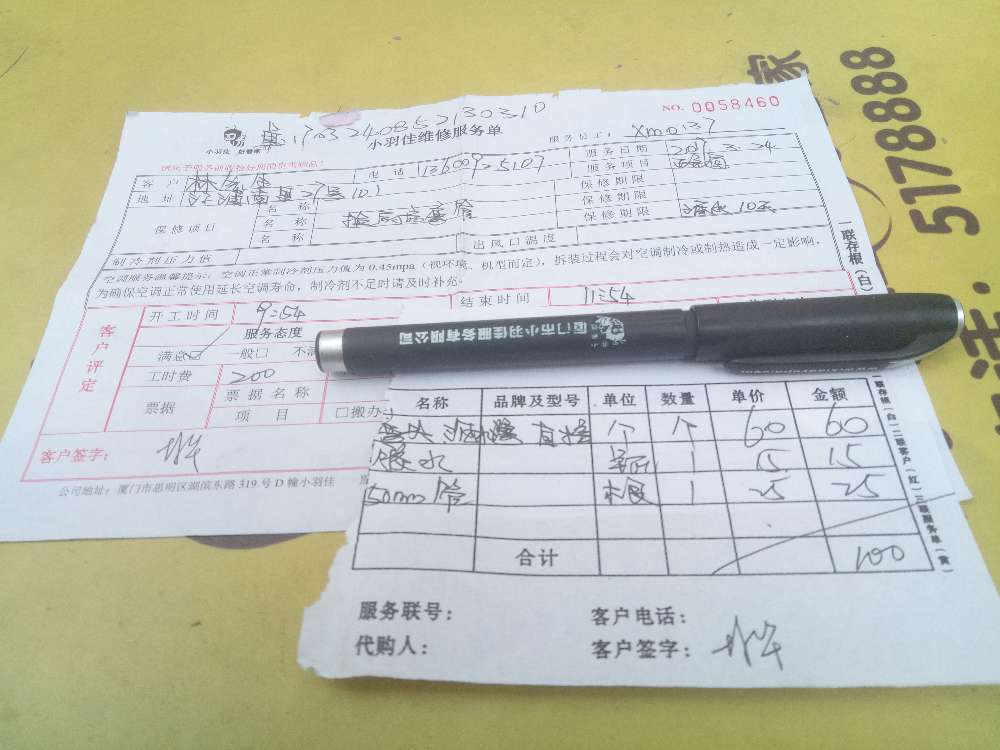 家
5178888
NO. 0058460
1703240852130310
小羽佳 好管家
小羽佳维修服务单
服务员工: Xm0137
客户 林先生 电话 服务日期 2017.3.24
地址 服务项目
保修项目 名称 保修期限
名称 保修期限
名称 保修期限 10天
制冷剂压力值 出风口温度
空调服务温馨提示: 空调正常制冷剂压力值为 0.45mpa (视环境、机型而定), 拆装过程会对空调制冷或制热造成一定影响,
为确保空调正常使用延长空调寿命, 制冷剂不足时请及时补充。
一联存根(白)
客户评定
开工时间 9:54 结束时间 11:54
服务态度
满意☑ 一般□ 不满
工时费 200
票据 票据名称
项目 □搬办
客户签字:
公司地址: 厦门市思明区湖滨东路 319 号 D 幢小羽佳
厦门市小羽佳服务有限公司
名称 品牌及型号 单位 数量 单价 金额
直接 个 个 60 60
胶水 1 15 15
50mm管 根 1 25 25
合计 100
一联存根(白)二联客户(红)三联服务单(黄)
服务联号: 客户电话:
代购人: 客户签字: